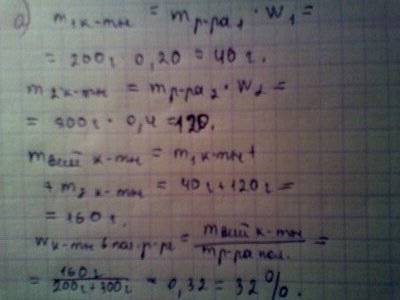 а) m₁ к-ты = m р-ра₁ · w₁ =
= 200г · 0,20 = 40 г.
m₂ к-ты = m р-ра₂ · w₂ =
= 300г · 0,4 = 120.
m к-ты = m₁ к-ты +
+ m₂ к-ты = 40г + 120г =
= 160 г.
w к-ты в пол. р-ре = m к-ты / m р-ра пол. =
= 160 г / 200г + 300г = 0,32 = 32 %.